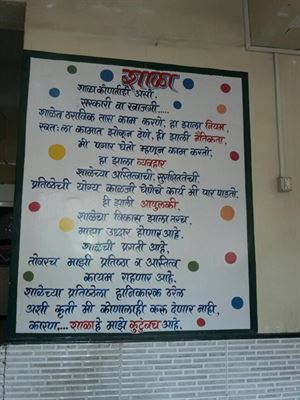 शाळा
शाळा कोणतीही असो,
सरकारी वा खाजगी.....
शाळेत ठराविक तास काम करणे, हा झाला नियम,
स्वतःला कामात झोकून देणे, ही झाली नैतिकता,
मी पगार घेतो म्हणून काम करतो,
हा झाला व्यवहार
शाळेच्या अस्तित्वाची, सुरक्षिततेची,
प्रतिष्ठेची योग्य काळजी घेणेचे कार्य मी पार पाडतो,
ही झाली आपुलकी
शाळेचा विकास झाला तरच,
माझा उध्दार होणार आहे,
शाळेची प्रगती आहे,
तोवरच माझी प्रतिष्ठा व अस्तित्व
कायम राहणार आहे.
शाळेच्या प्रतिष्ठेला हानिकारक ठरेल
अशी कृती मी कोणालाही करू देणार नाही,
कारण.... शाळा हे माझे कुटुंबच आहे.